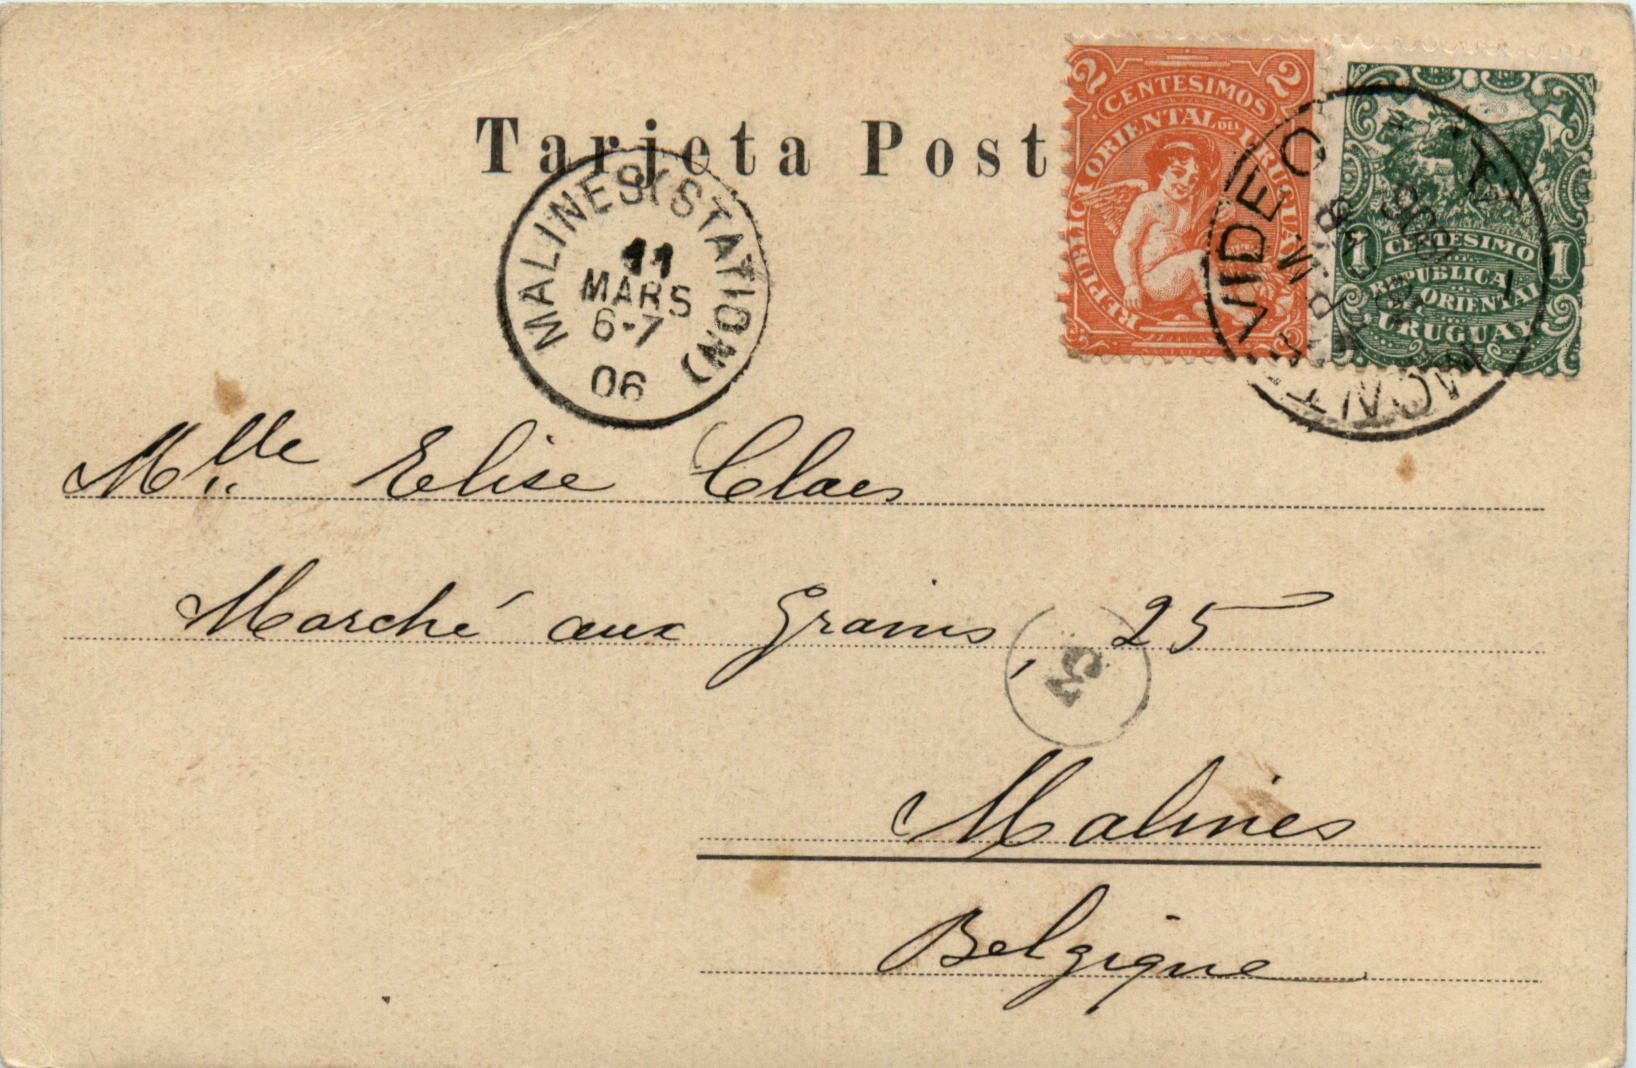 Tarjeta Post
2 CENTESIMOS 2
REPUBLICA ORIENTAL DEL URUGUAY
1 CENTESIMO 1
REPUBLICA
ORIENTAL
URUGUAY
MONTEVIDEO
MALINES (STATION)
11
MARS
6-7
06
Mlle Elise Claes
Marché aux Grains, 25
5
Malines
Belgique